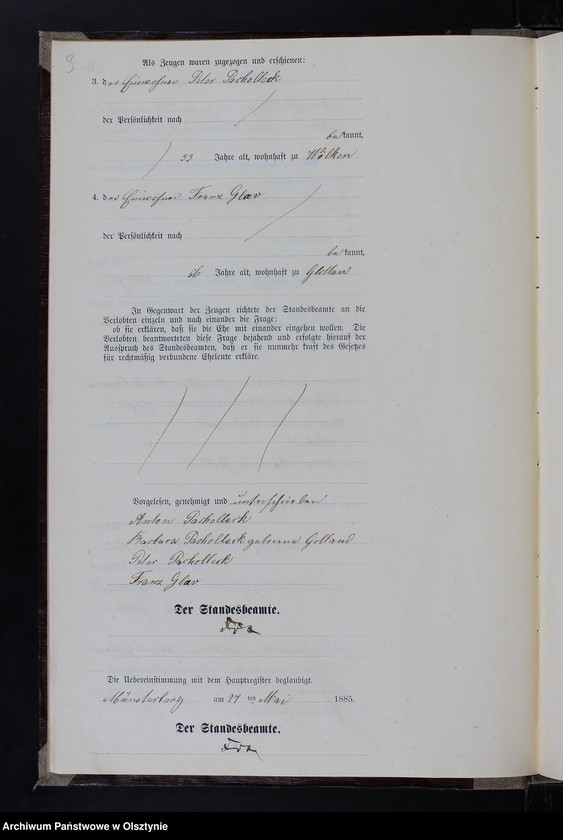 9
Als Zeugen waren zugezogen und erschienen:
3. der Einwohner Peter Pacholleck
der Persönlichkeit nach
bekannt,
33 Jahre alt, wohnhaft zu Wölken
4. der Einwohner Franz Glav
der Persönlichkeit nach
bekannt,
56 Jahre alt, wohnhaft zu Glottau
In Gegenwart der Zeugen richtete der Standesbeamte an die
Verlobten einzeln und nach einander die Frage:
ob sie erklären, daß sie die Ehe mit einander eingehen wollen. Die
Verlobten beantworteten diese Frage bejahend und erfolgte hierauf der
Ausspruch des Standesbeamten, daß er sie nunmehr kraft des Gesetzes
für rechtmäßig verbundene Eheleute erkläre.
Vorgelesen, genehmigt und unterschrieben
Anton Pacholleck
Barbara Pacholleck geborene Golland
Peter Pacholleck
Franz Glav
Der Standesbeamte.
Die Uebereinstimmung mit dem Hauptregister beglaubigt.
Münsterberg am 27 ten Mai 1885.
Der Standesbeamte.
Archiwum Państwowe w Olsztynie